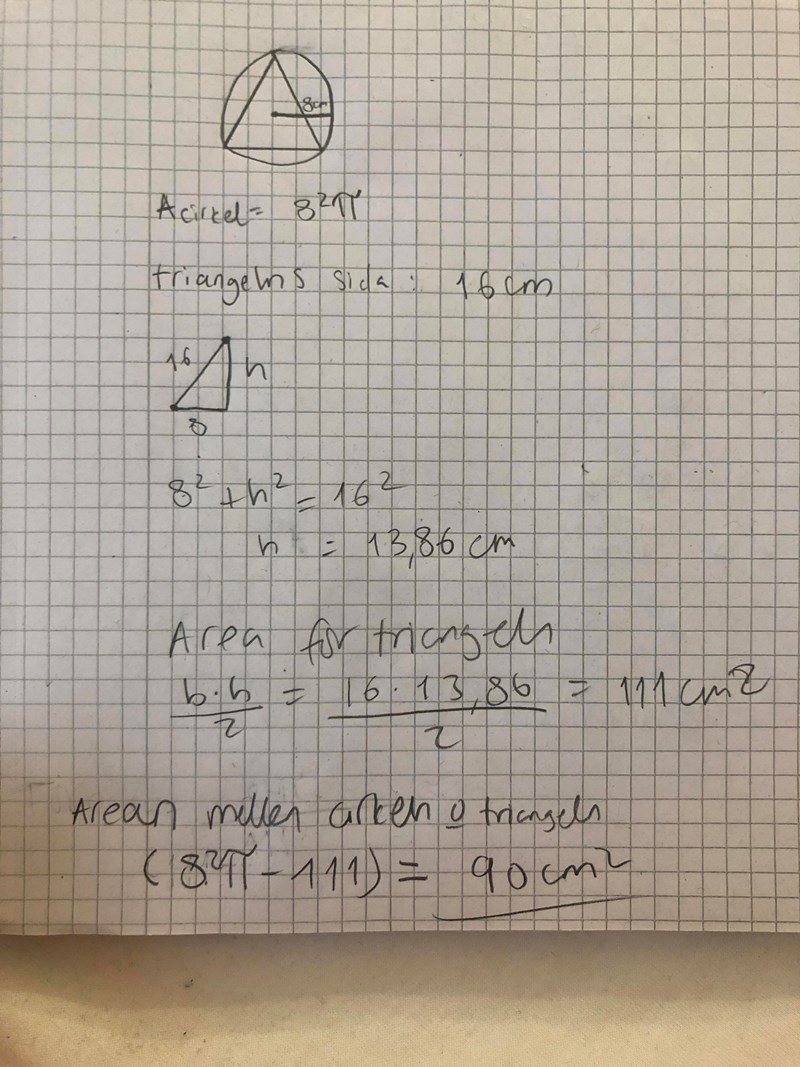 8cm
Acirkel = 8²π
triangelns sida : 16 cm
16 h
8
8² + h² = 16²
h = 13,86 cm
Area för triangeln
b·h/2 = 16·13,86/2 = 111 cm²
Arean mellan cirkeln o triangeln
(8²π - 111) = 90 cm²